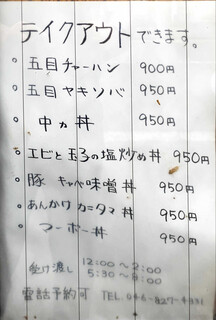 テイクアウトできます。
○ 五目チャーハン 900円
○ 五目ヤキソバ 950円
○ 中カ丼 950円
○ エビと玉子の塩炒め丼 950円
○ 豚キャベ味噌丼 950円
○ あんかけカニタマ丼 950円
○ マーボー丼 950円
受け渡し 12:00〜2:00
5:30〜8:00
電話予約可 TEL.